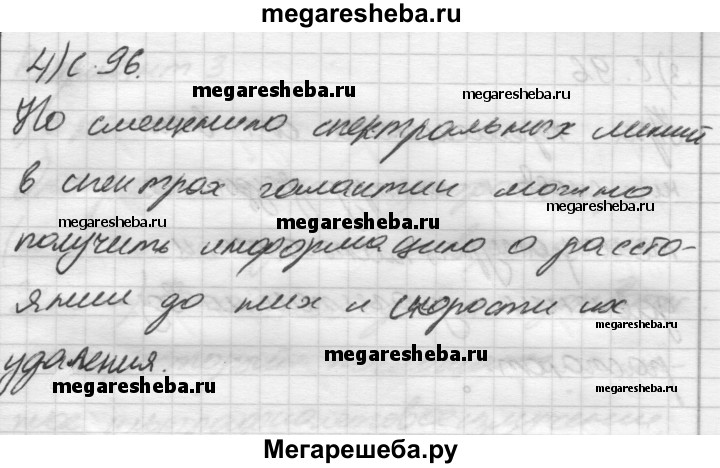 megaresheba.ru
4) с. 96.
megaresheba.ru
megaresheba.ru
По смещению спектральных линий
в спектрах галактик можно
megaresheba.ru
megaresheba.ru
megaresheba.ru
получить информацию о рассто-
янии до них и скорости их
megaresheba.ru
удаления.
megaresheba.ru
megaresheba.ru
megaresheba.ru
Мегарешеба.ру